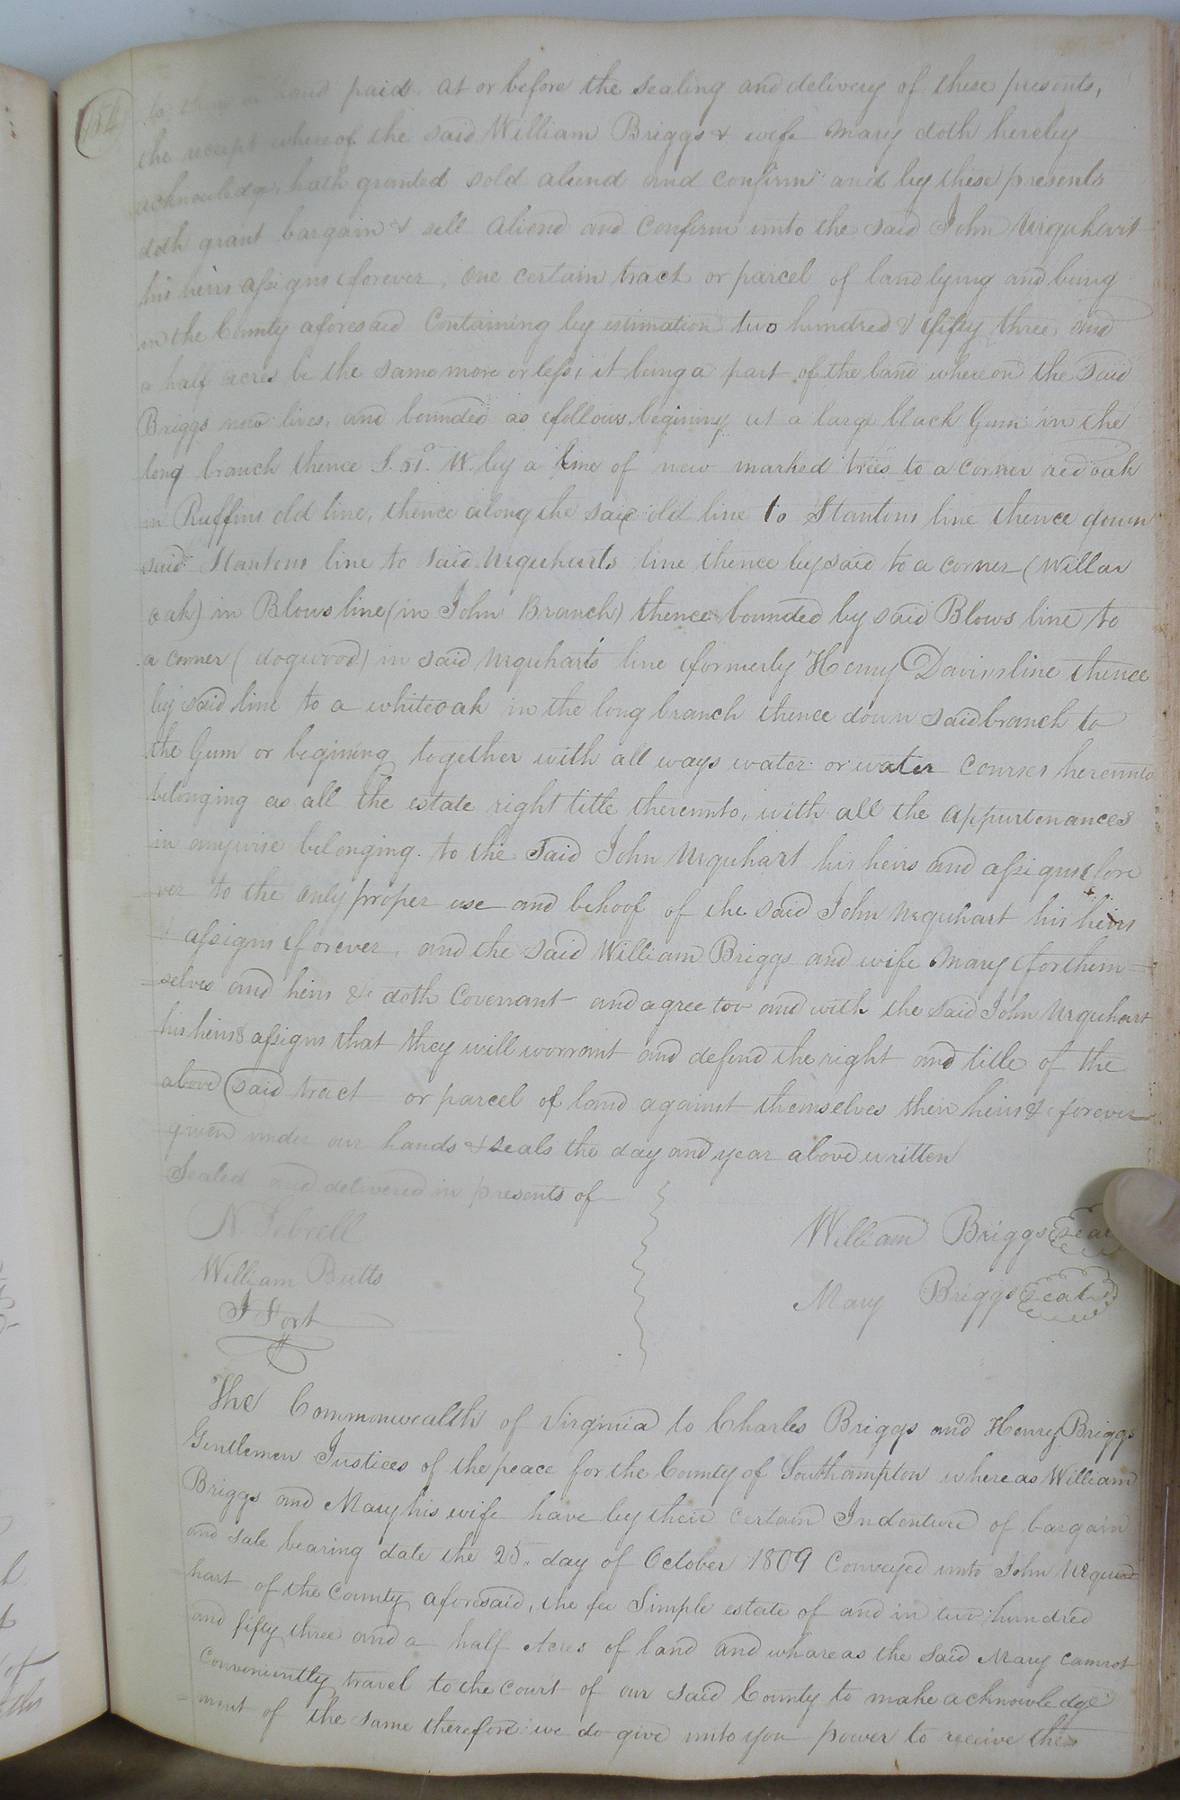 to them in hand paid. at or before the sealing and delivery of these presents,
the receipt whereof the said William Briggs & wife Mary doth hereby
acknowledge, hath granted sold aliend and confirm and by these presents
doth grant bargain & sell aliend and confirm unto the said John Urquhart
his heirs assigns forever, one certain tract or parcel of land lying and being
in the County aforesaid Containing by estimation two hundred & fifty three, and
a half acres be the same more or less, it being a part of the land whereon the said
Briggs now lives, and bounded as follows. begining at a large black Gum in the
long branch thence S. 51°. W. by a line of new marked trees to a corner red oak
in Ruffins old line, thence along the said old line to Stantons line thence down
said Stantons line to said Urquharts line thence by said to a corner (Willow
oak) in Blows line (in John Branch) thence bounded by said Blows line to
a corner (dogwood) in said Urquharts line formerly Henry Davis's line thence
by said line to a white oak in the long branch thence down said branch to
the Gum or begining together with all ways water or water courses hereunto
belonging as all the estate right title thereunto, with all the appurtenances
in anywise belonging. to the said John Urquhart his heirs and assigns fore
ver to the only proper use and behoof of the said John Urquhart his heirs
& assigns forever, and the said William Briggs and wife Mary for them-
selves and heirs &c doth Covenant and agree too and with the said John Urquhart
his heirs & assigns that they will worrant and defend the right and title of the
above said tract or parcel of land against themselves their heirs & forever
given under our hands & seals the day and year above written
Sealed and delivered in presents of
N. Sebrell
William Butts
J Fort
William Briggs seal
Mary Briggs seal
The Commonwealth of Virginia to Charles Briggs and Henry Briggs
Gentlemen Justices of the peace for the County of Southampton whereas William
Briggs and Mary his wife have by their certain Indenture of bargain
and sale bearing date the 25. day of October 1809 Conveyed unto John Urqu
hart of the County aforesaid, the fee Simple estate of and in two hundred
and fifty three and a half Acres of land and whareas the said Mary cannot
conveniently travel to the court of our said County to make acknowledge
ment of the same therefore we do give unto you power to receive the